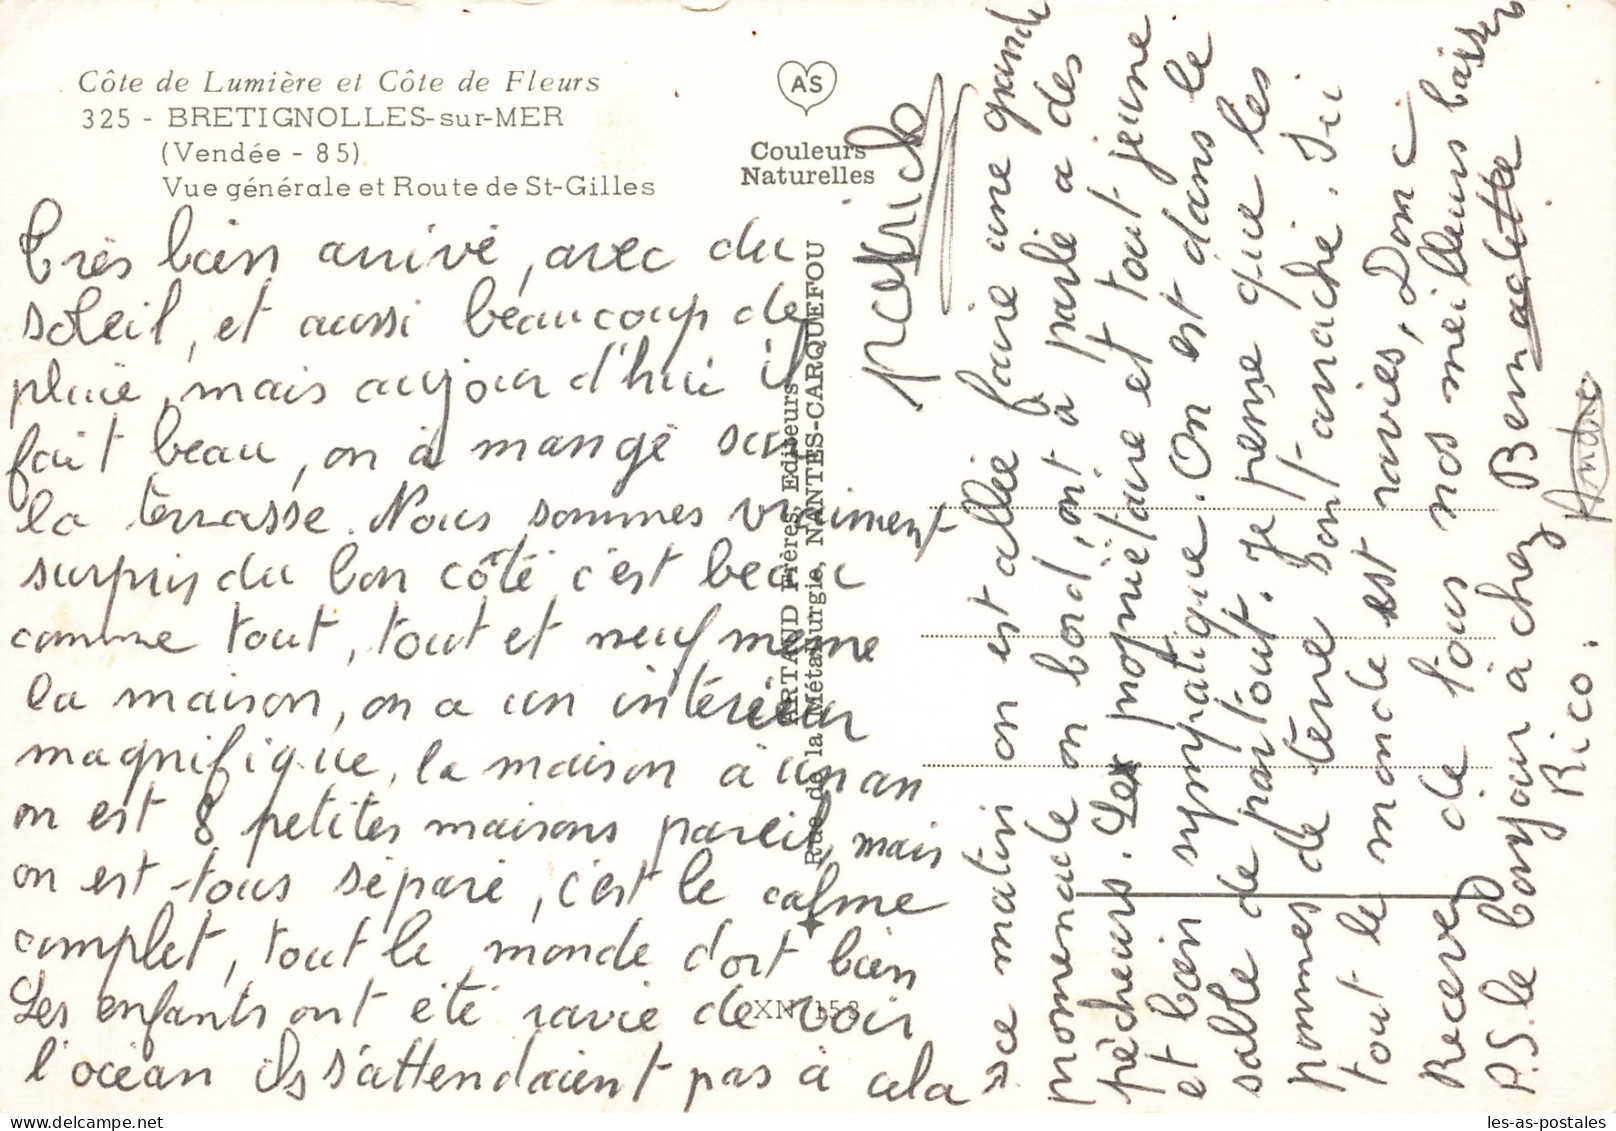 Côte de Lumière et Côte de Fleurs
325 - BRETIGNOLLES-sur-MER
(Vendée - 85)
Vue générale et Route de St-Gilles
AS
Couleurs
Naturelles
Très bien arrivé, avec du
soleil, et aussi beaucoup de
pluie, mais aujourd'hui il
fait beau, on à mangé sur
la terrasse. Nous sommes vraiment
surpris du bon côté c'est beau
comme tout, tout et neuf même
la maison, on a un intérieur
magnifique, la maison à un an
on est 8 petites maisons pareil, mais
on est tous séparé, c'est le calme
complet, tout le monde dort bien
Les enfants ont été ravie de voir
l'océan ils s'attendaient pas à cela
ARTAUD Frères, Editeurs
Rue de la Métallurgie, NANTES-CARQUEFOU
XN 153
ce matin on est allée faire une grande
promenade on bord, ont à parlé a des
pêcheurs. Les propriétaire et tout jeune
et bien sympatique. On est dans le
sable de partout. Je pense que les
pommes de terre sont arraché. Ici
tout le monde est ravies, Donc
Recevez de tous nos meilleurs baisers
P.S. le bonjour à chez Bernadette
Rico.
André
Patrick
les-as-postales